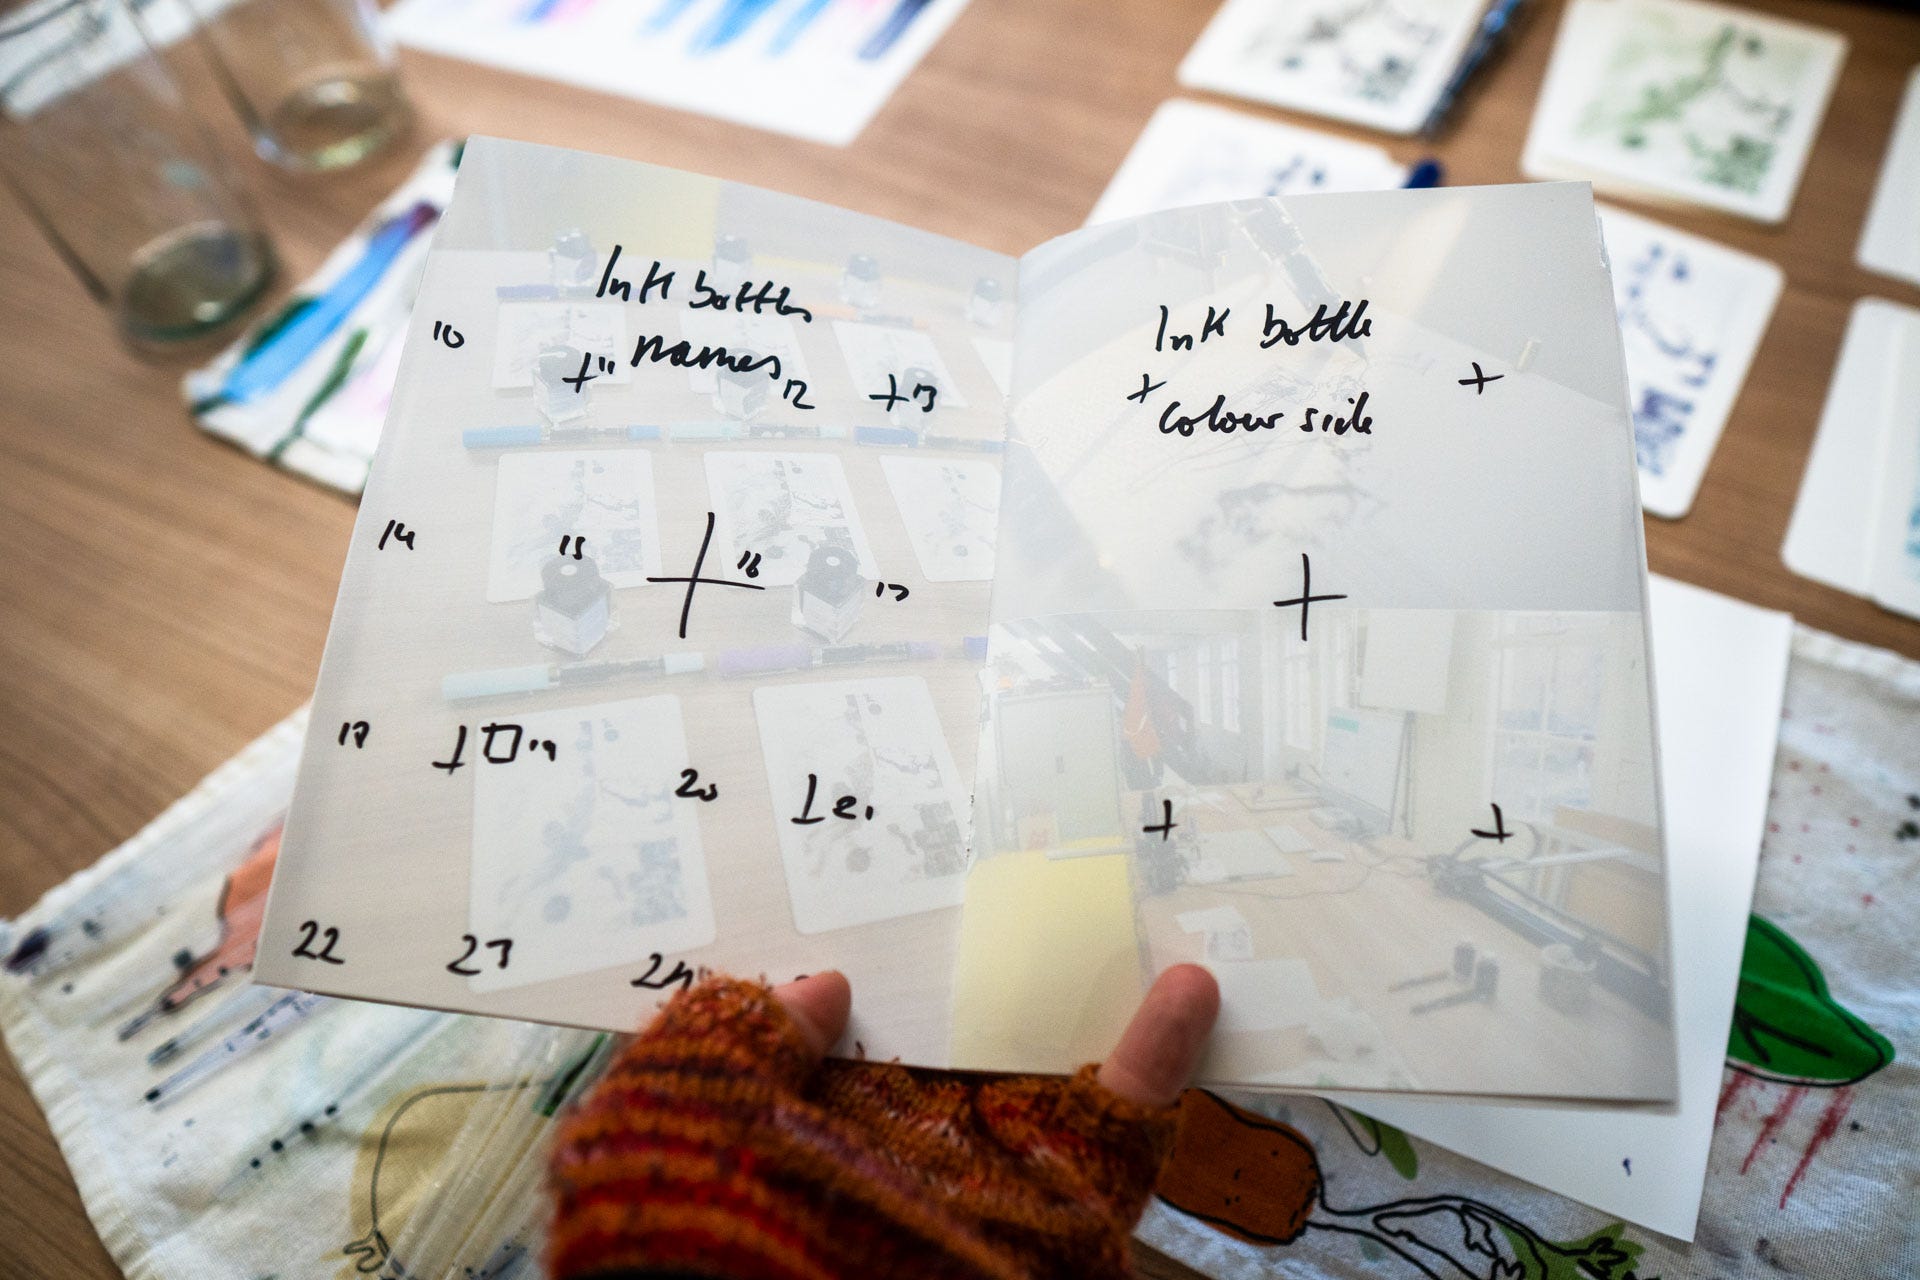 Ink bottles
names
10
+ 11
12
+ 13
14
15
16
17
19
20
21
22
23
24
Ink bottle
+ +
colour side
+
+ +